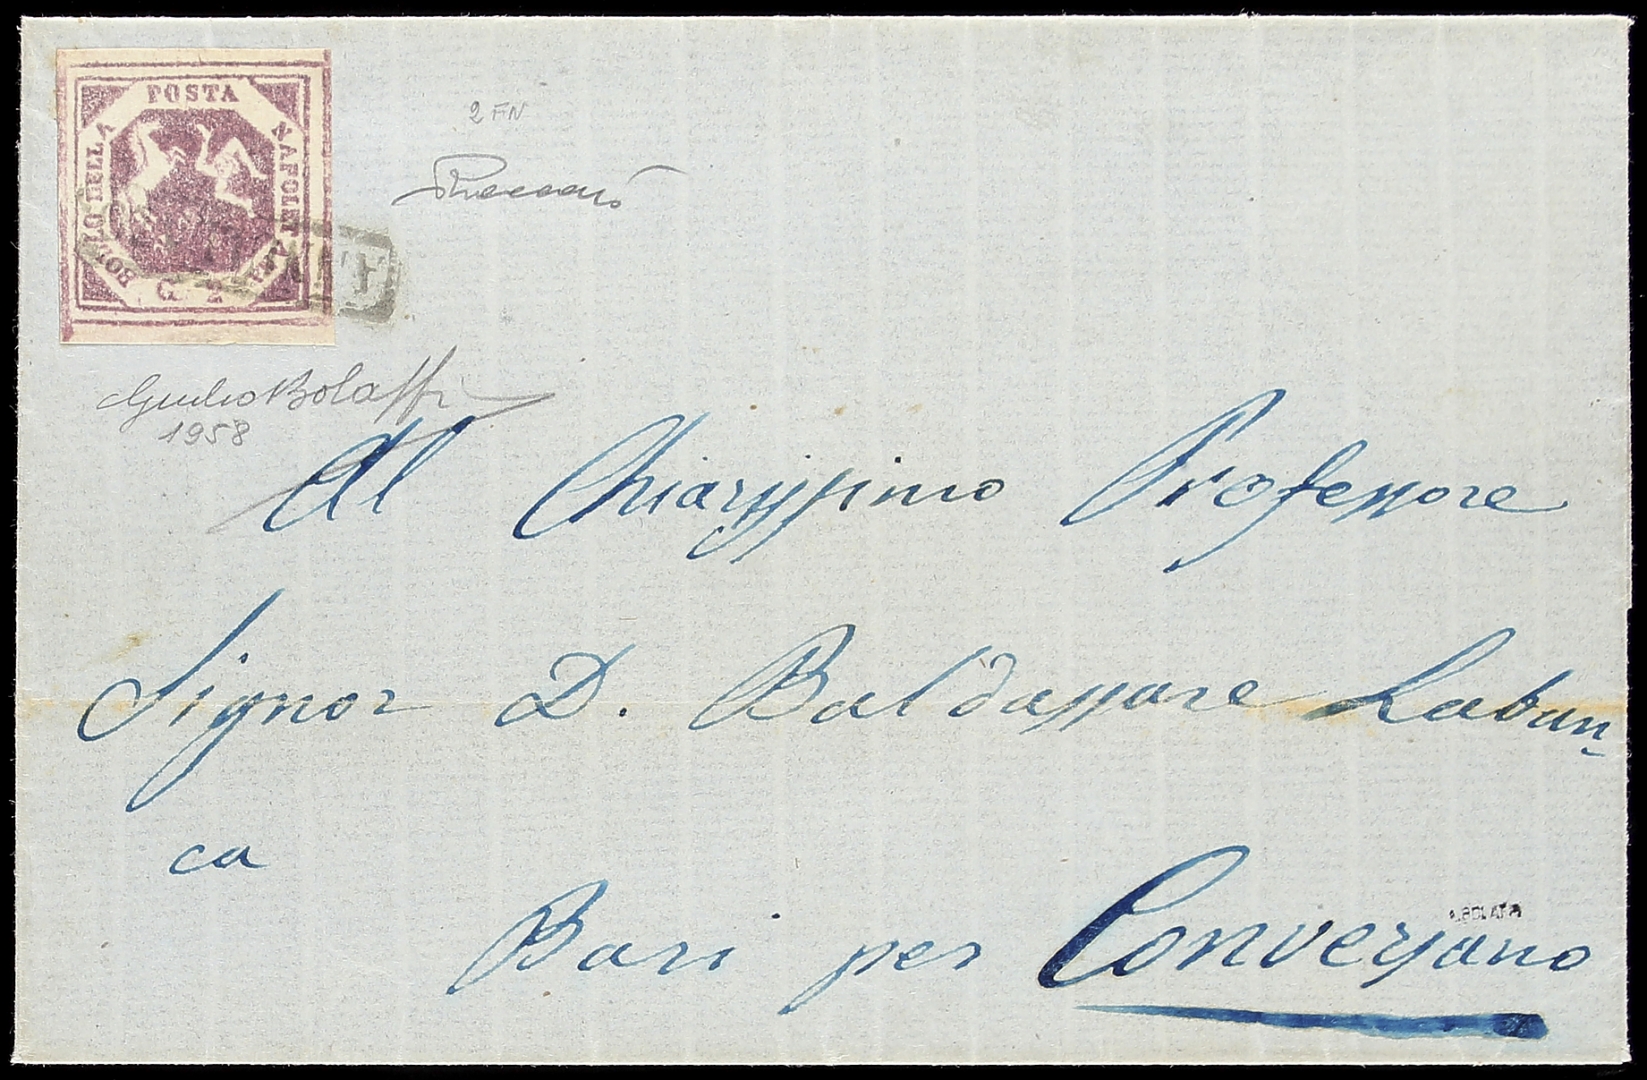 BOLLO DELLA POSTA NAPOLETANA
G. 2
2 FN
Giulio Bolaffi
1958
Al Chiarissimo Professore
Signor D. Baldassare Laban-
ca
A. BOLAFFI
Bari per Conversano